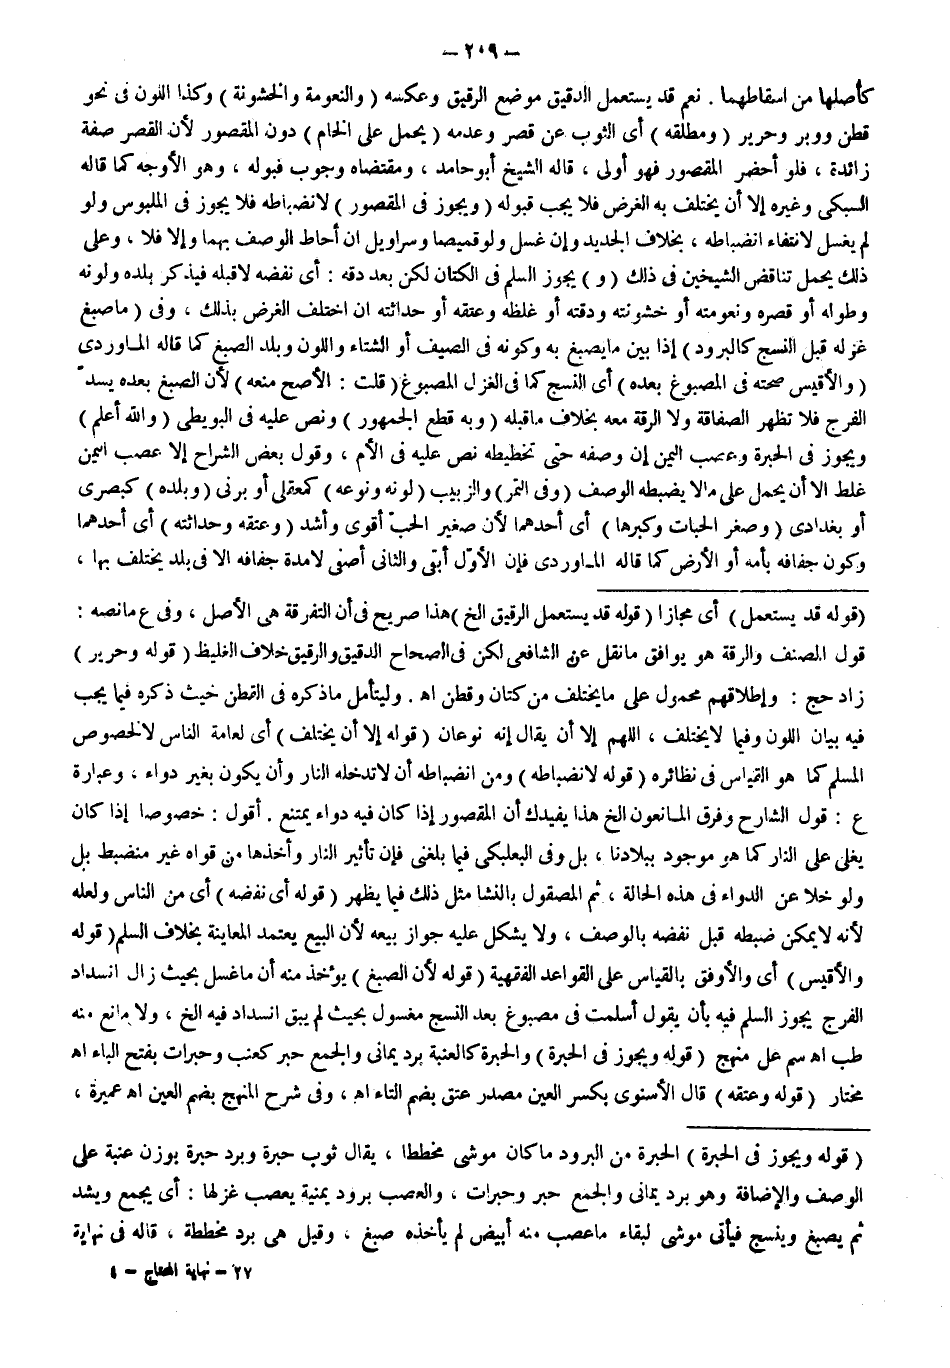 — ٢٠٩ —
كأصلها من اسقاطهما . نعم قد يستعمل الدقيق موضع الرقيق وعكسه ( والنعومة والخشونة ) وكذا اللون فى نحو
قطن ووبر وحرير ( ومطلقه ) أى الثوب عن قصر وعدمه ( يحمل على الخام ) دون المقصور لأن القصر صفة
زائدة ، فلو أحضر المقصور فهو أولى ، قاله الشيخ أبو حامد ، ومقتضاه وجوب قبوله ، وهو الأوجه كما قاله
السبكى وغيره إلا أن يختلف به الغرض فلا يجب قبوله ( ويجوز فى المقصور ) لانضباطه فلا يجوز فى الملبوس ولو
لم يغسل لانتفاء انضباطه ، بخلاف الجديد وإن غسل ولو قميصا وسراويل ان أحاط الوصف بهما وإلا فلا ، وعلى
ذلك يحمل تناقض الشيخين فى ذلك ( و ) يجوز السلم فى الكتان لكن بعد دقه : أى نفضه لاقبله فيذكر بلده ولونه
وطوله أو قصره ونعومته أو خشونته ودقته أو غلظه وعتقه أو حداثته ان اختلف الغرض بذلك ، وفى ( ماصبغ
غزله قبل النسج كالبرود ) إذا بين مايصبغ به وكونه فى الصيف أو الشتاء واللون وبلد الصبغ كما قاله الماوردى
( والأقيس صحته فى المصبوغ بعده ) أى النسج كما فى الغزل المصبوغ ( قلت : الأصح منعه ) لأن الصبغ بعده يسدّ
الفرج فلا تظهر الصفاقة ولا الرقة معه بخلاف ماقبله ( وبه قطع الجمهور ) ونص عليه فى البويطى ( والله أعلم )
ويجوز فى الحبرة وعصب اليمن إن وصفه حتى تخطيطه نص عليه فى الأم ، وقول بعض الشراح إلا عصب اليمن
غلط الا أن يحمل على مالا يضبطه الوصف ( وفى التمر ) والزبيب ( لونه ونوعه ) كمعقلى أو برنى ( وبلده ) كبصرى
أو بغدادى ( وصغر الحبات وكبرها ) أى أحدهما لأن صغير الحبّ أقوى وأشد ( وعتقه وحداثته ) أى أحدهما
وكون جفافه بأمه أو الأرض كما قاله الماوردى فإن الأوّل أبقى والثانى أصفى لامدة جفافه الا فى بلد يختلف بها ،
( قوله قد يستعمل ) أى مجازا ( قوله قد يستعمل الرقيق الخ ) هذا صريح فى أن التفرقة هى الأصل ، وفى ع مانصه :
قول المصنف والرقة هو يوافق مانقل عن الشافعى لكن فى الصحاح الدقيق والرقيق خلاف الغليظ ( قوله وحرير )
زاد حج : وإطلاقهم محمول على مايختلف من كتان وقطن اه . وليتأمل ماذكره فى القطن حيث ذكره فيما يجب
فيه بيان اللون وفيما لايختلف ، اللهم إلا أن يقال إنه نوعان ( قوله إلا أن يختلف ) أى لعامة الناس لالخصوص
المسلم كما هو القياس فى نظائره ( قوله لانضباطه ) ومن انضباطه أن لاتدخله النار وأن يكون بغير دواء ، وعبارة
ع : قول الشارح وفرق المانعون الخ هذا يفيدك أن المقصور إذا كان فيه دواء يمتنع . أقول : خصوصا إذا كان
يغلى على النار كما هو موجود ببلادنا ، بل وفى البعلبكى فيما بلغنى فإن تأثير النار وأخذها من قواه غير منضبط بل
ولو خلا عن الدواء فى هذه الحالة ، ثم المصقول بالنشا مثل ذلك فيما يظهر ( قوله أى نفضه ) أى من الناس ولعله
لأنه لايمكن ضبطه قبل نفضه بالوصف ، ولا يشكل عليه جواز بيعه لأن البيع يعتمد المعاينة بخلاف السلم ( قوله
والأقيس ) أى والأوفق بالقياس على القواعد الفقهية ( قوله لأن الصبغ ) يؤخذ منه أن ماغسل بحيث زال انسداد
الفرج يجوز السلم فيه بأن يقول أسلمت فى مصبوغ بعد النسج مغسول بحيث لم يبق انسداد فيه الخ ، ولا مانع منه
طب اه سم على منهج ( قوله ويجوز فى الحبرة ) والحبرة كالعنبة برد يمانى والجمع حبر كعنب وحبرات بفتح الباء اه
مختار ( قوله وعتقه ) قال الأسنوى بكسر العين مصدر عتق بضم التاء اه ، وفى شرح المنهج بضم العين اه عميرة ،
( قوله ويجوز فى الحبرة ) الحبرة من البرود ماكان موشى مخططا ، يقال ثوب حبرة وبرد حبرة بوزن عنبة على
الوصف والإضافة وهو برد يمانى والجمع حبر وحبرات ، والعصب برود يمنية يعصب غزلها : أى يجمع ويشد
ثم يصبغ وينسج فيأتى موشى لبقاء ماعصب منه أبيض لم يأخذه صبغ ، وقيل هى برد مخططة ، قاله فى نهاية
٢٧ - نهاية المحتاج - ٤